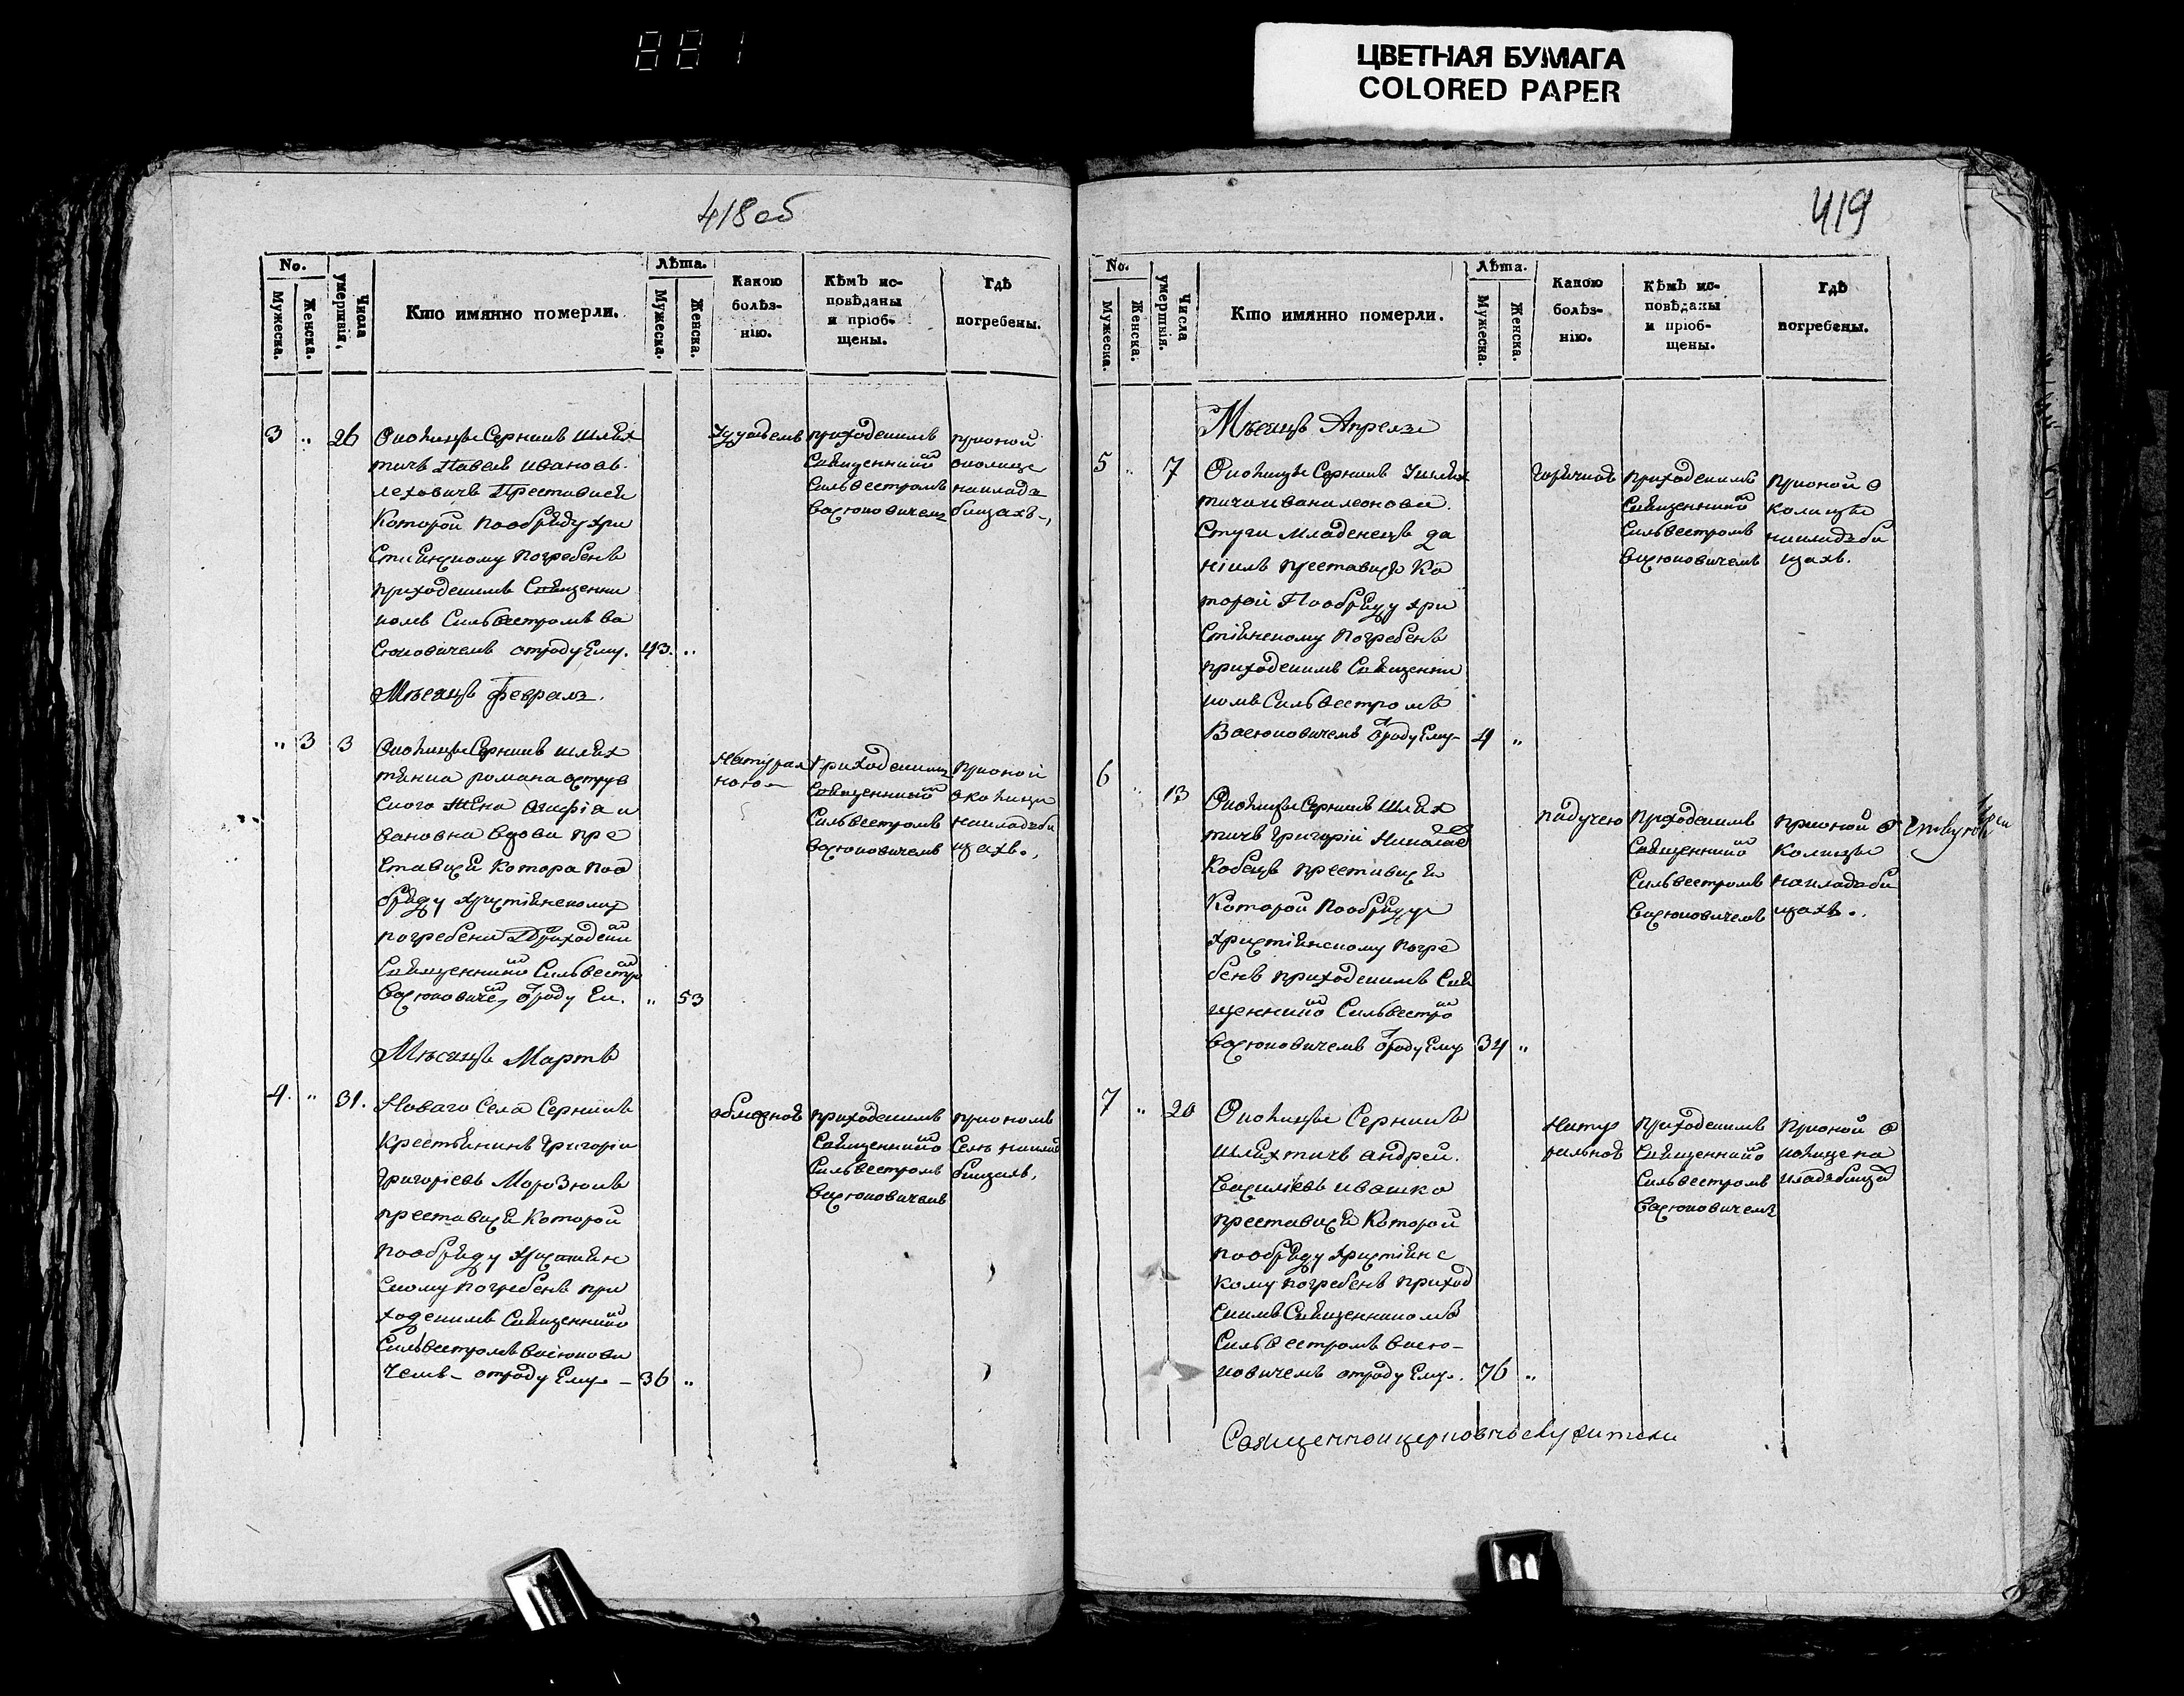 881
ЦВЕТНАЯ БУМАГА
COLORED PAPER
418 об
No.
Мужеска.
Женска.
Числа умертвія,
Кто имянно померли.
Лѣта.
Мужеска.
Женска.
Какою болѣз-нію.
Кѣмъ ис-повѣданы и пріоб-щены.
Гдѣ погребены.
3 " 26
Околицы Серникъ Шлях
тичъ Павелъ Иванов
Преставися
Которой пообряду Хри
стиянскому погребенъ
приходскимъ Священни
комъ Сильвестромъ Ва
сюковичемъ отроду Ему. 43. "
приходскимъ
Священником
Сильвестромъ
Васюковичемъ
при оной
околице
на кладъ
бищахъ
Мѣсяцъ Февраль.
" 3 3
Околицы Серникъ Шлях
тянка Романа
жена Агафія И
вановна вдова пре
ставися Котора поо
бряду Христіянскому
погребена Приходским
Священником Сильвестром
Васюковичем, отроду Ей. " 53
Натурал
ною
Приходскимъ
Священником
Сильвестромъ
Васюковичемъ
при оной
околицы
на кладъби
щахъ.
Мѣсяцъ Мартъ
4. " 31.
Новаго Села Серникъ
Крестьянинъ Григорій
Григоріевъ Морозюкъ
преставися Которой
пообряду Християн
скому погребенъ при
ходскимъ Священником
Сильвестромъ Васюкови
чемъ - отроду Ему - 36 "
приходскимъ
Священником
Сильвестромъ
Васюковичемъ
при ономъ
Селѣ на клад
бищахъ,
419
No.
Мужеска.
Женска.
Числа умертвія.
Кто имянно померли.
Лѣта.
Мужеска.
Женска.
Какою болѣз-нію.
Кѣмъ ис-повѣданы и пріоб-щены.
Гдѣ погребены.
Мѣсяцъ Апрель
5 " 7
Околицы Серникъ Шлях
тича Ивана
младенецъ Да
ніилъ преставися Ко
торой Пообряду Хри
стіянскому погребенъ
приходскимъ Священни
комъ Сильвестромъ
Васюковичемъ отроду Ему 4 "
Приходскимъ
Священником
Сильвестромъ
Васюковичемъ
при оной о
колицы
на кладъби
щахъ.
6 " 13
Околицы Серникъ Шлях
тичъ Григорій Николаев
Кобецъ преставися
Которой Пообряду
Христіянскому погре
бенъ приходскимъ Свя
щенником Сильвестром
Васюковичемъ отроду Ему 34 "
падучею
Приходскимъ
Священником
Сильвестромъ
Васюковичемъ
при оной о
колицы
на кладъби
щахъ.
7 " 20
Околицы Серникъ
Шляхтичъ Андрей
Василіевъ Ивашко
преставися Которой
пообряду Христіянс
кому погребенъ приход
скимъ Священникомъ
Сильвестромъ Васю-
ковичемъ отроду Ему. 76 "
Натур
альною
Приходскимъ
Священником
Сильвестромъ
Васюковичемъ
При оной о
колице на
кладъбищах
Священноицерковнослужители